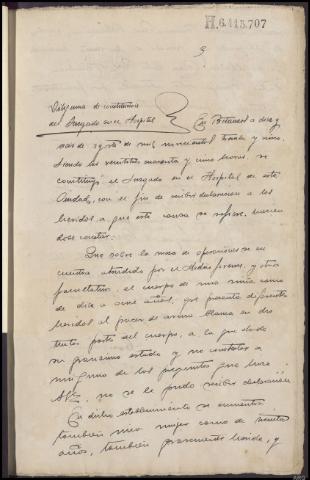 H.6.413.707
3
Diligencia de constitución
del Juzgado en el Hospital
En Betanzos a diez y
seis de agosto de mil novecientos treinta y cinco.
Siendo las veintitres cuarenta y cinco horas, se
constituyó el Juzgado en el Hospital de esta
Ciudad, con el fin de recibir declaracion a los
heridos a que esta causa se refiere, haciendose constar:
Que sobre la mesa de operaciones se en
cuentra atendida por el Médico forense, y otros
facultativos, el cuerpo de una niña como
de diez a once años, que presenta diferentes
heridas al parecer de arma blanca en dis
tintas partes del cuerpo, a la que dado
su gravisimo estado y no contestar a
ninguna de las preguntas que hace
no se le pudo recibir declaración.
En dicho establecimiento se encuentra
también una mujer como de
años, también gravemente herida, y